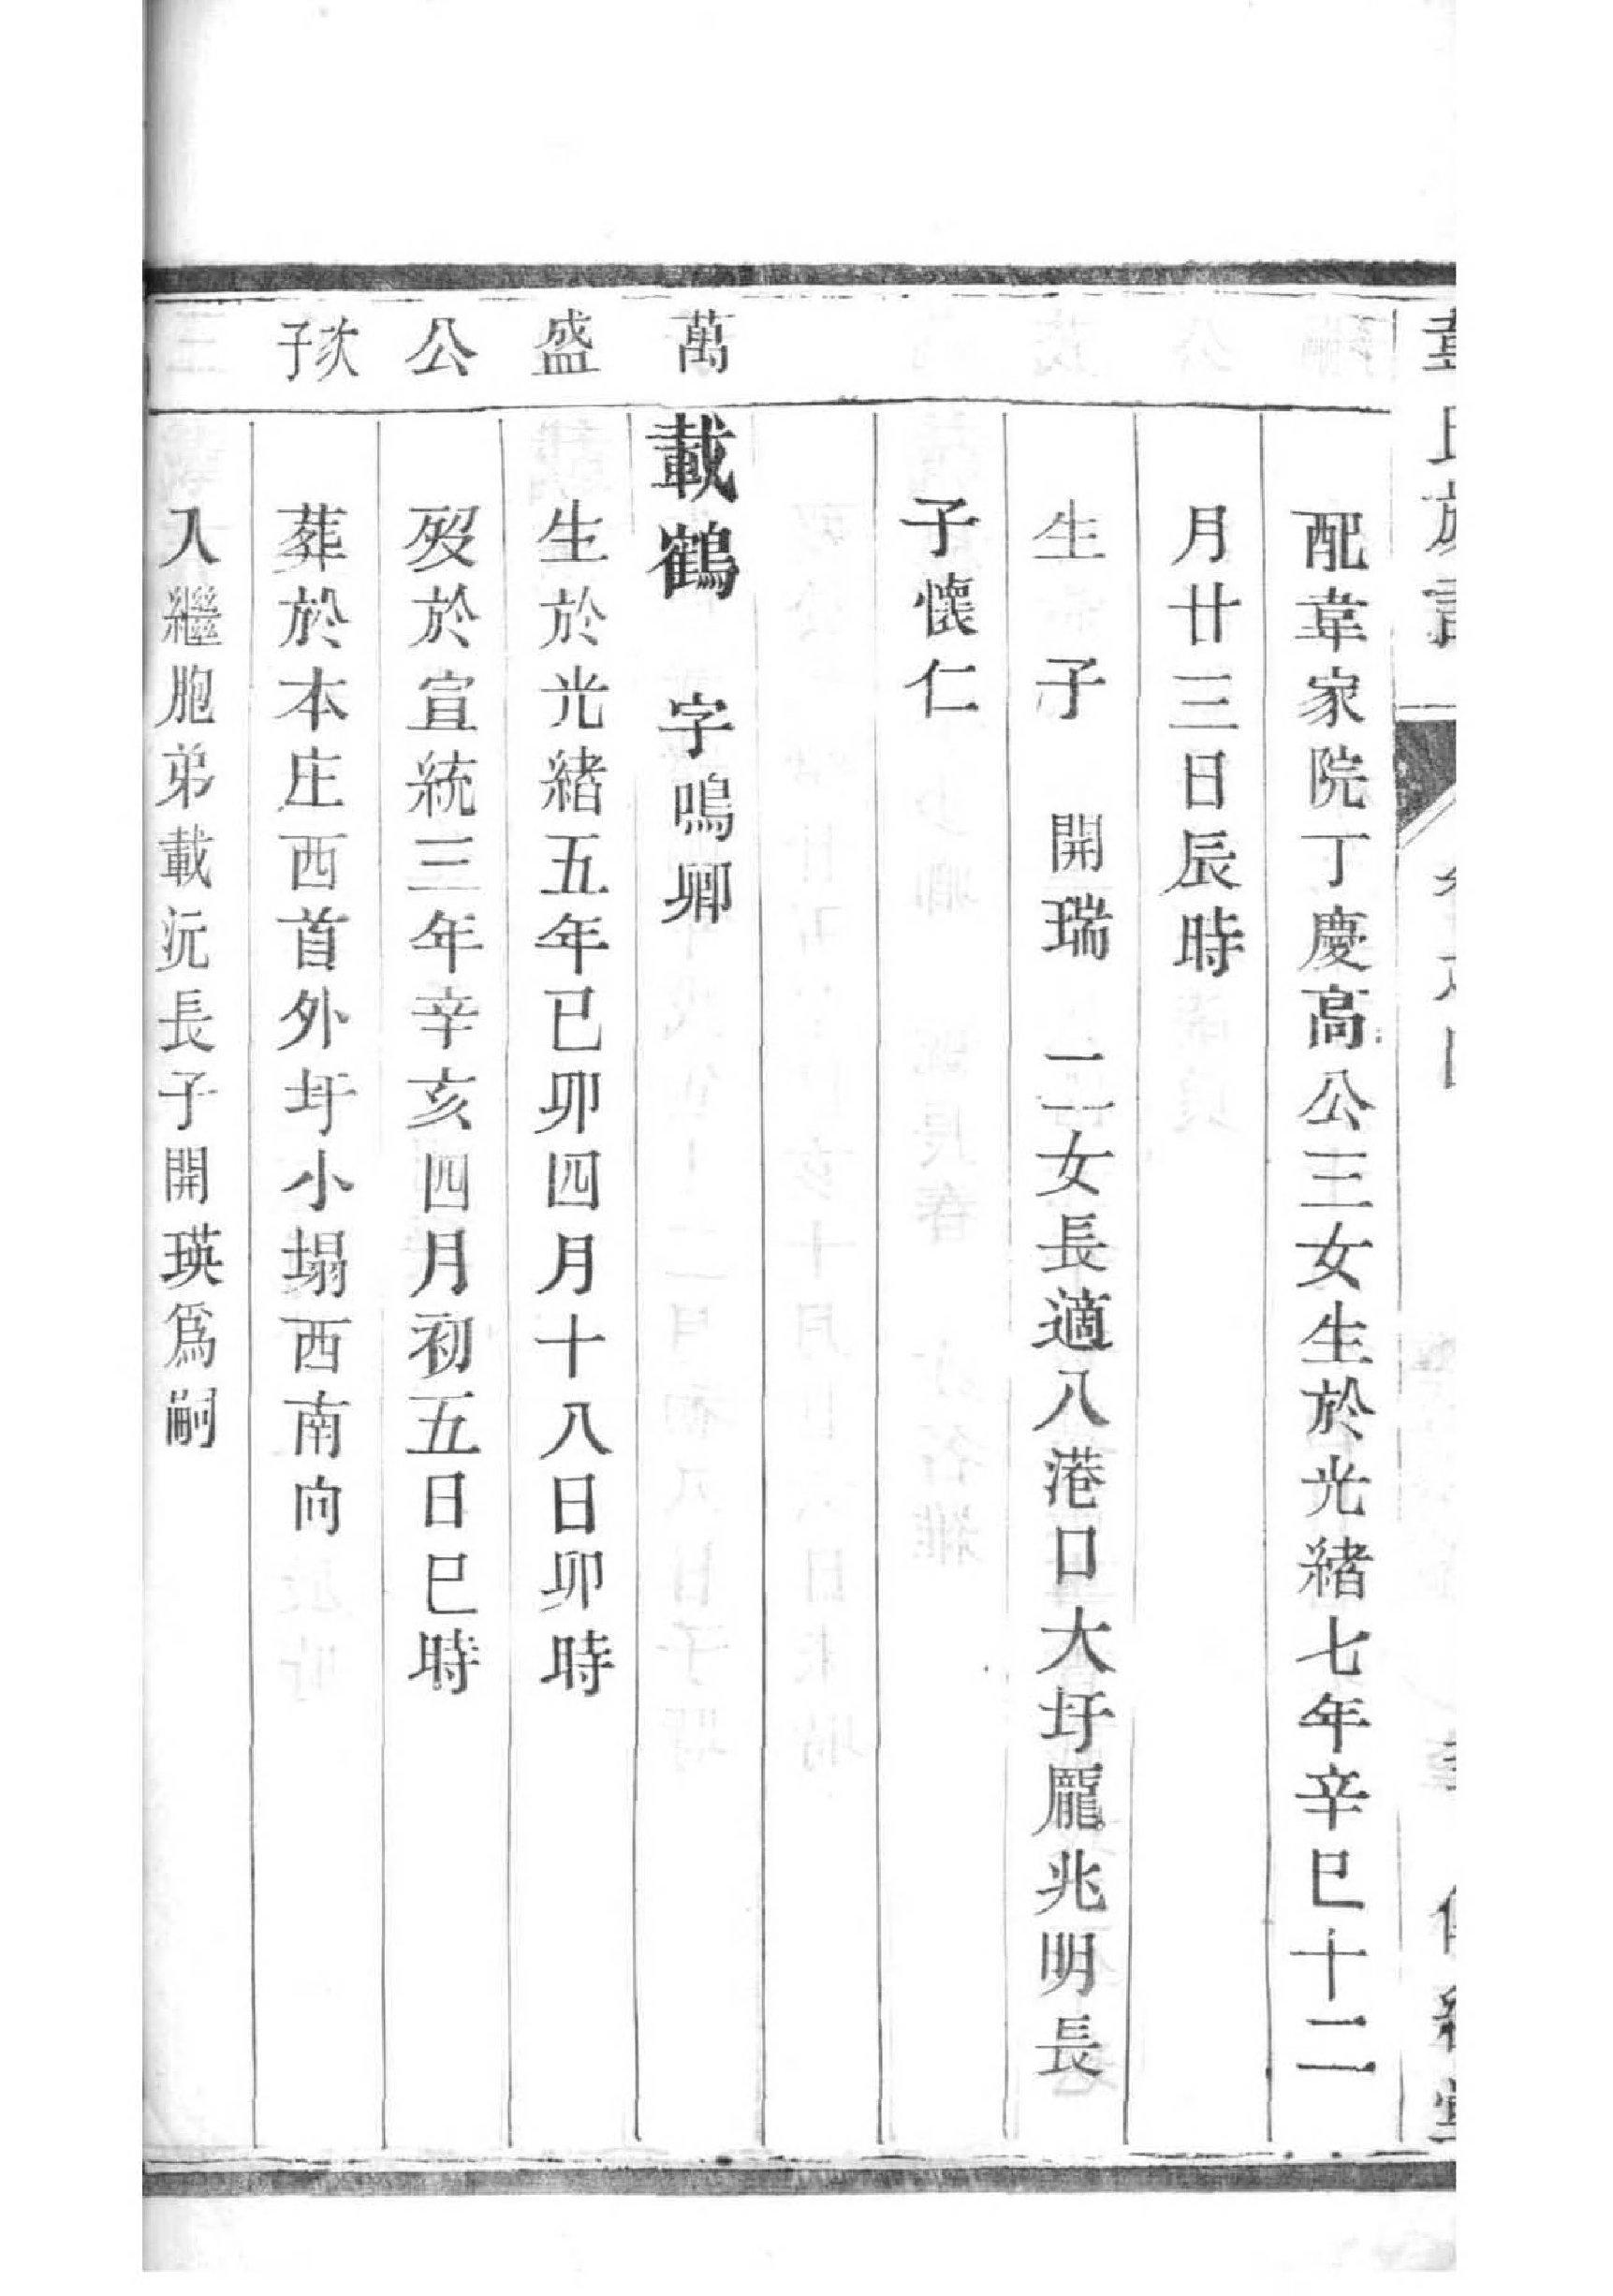 配韋家院丁慶高公三女生於光緒七年辛巳十二
月廿三日辰時
生子 開瑞 二女長適八港口大圩龎兆明長
子懷仁
萬盛公次子
載鶴 字鳴卿
生於光緒五年已卯四月十八日卯時
歿於宣統三年辛亥四月初五日巳時
葬於本庄西首外圩小塌西南向
入繼胞弟載沅長子開瑛爲嗣